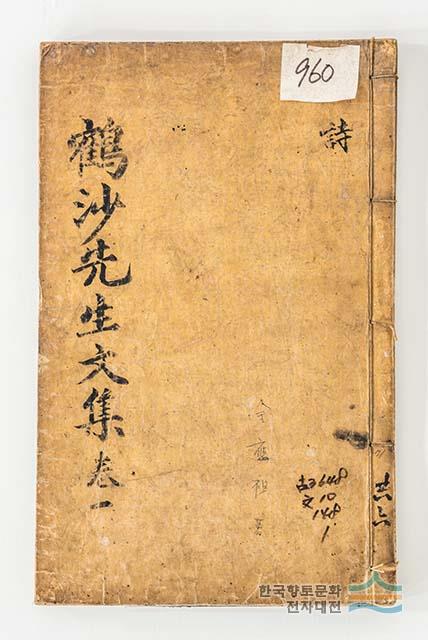 960
詩
鶴沙先生文集 卷一
金應祖 著
古3648
文10
148
1
共六
한국향토문화
전자대전